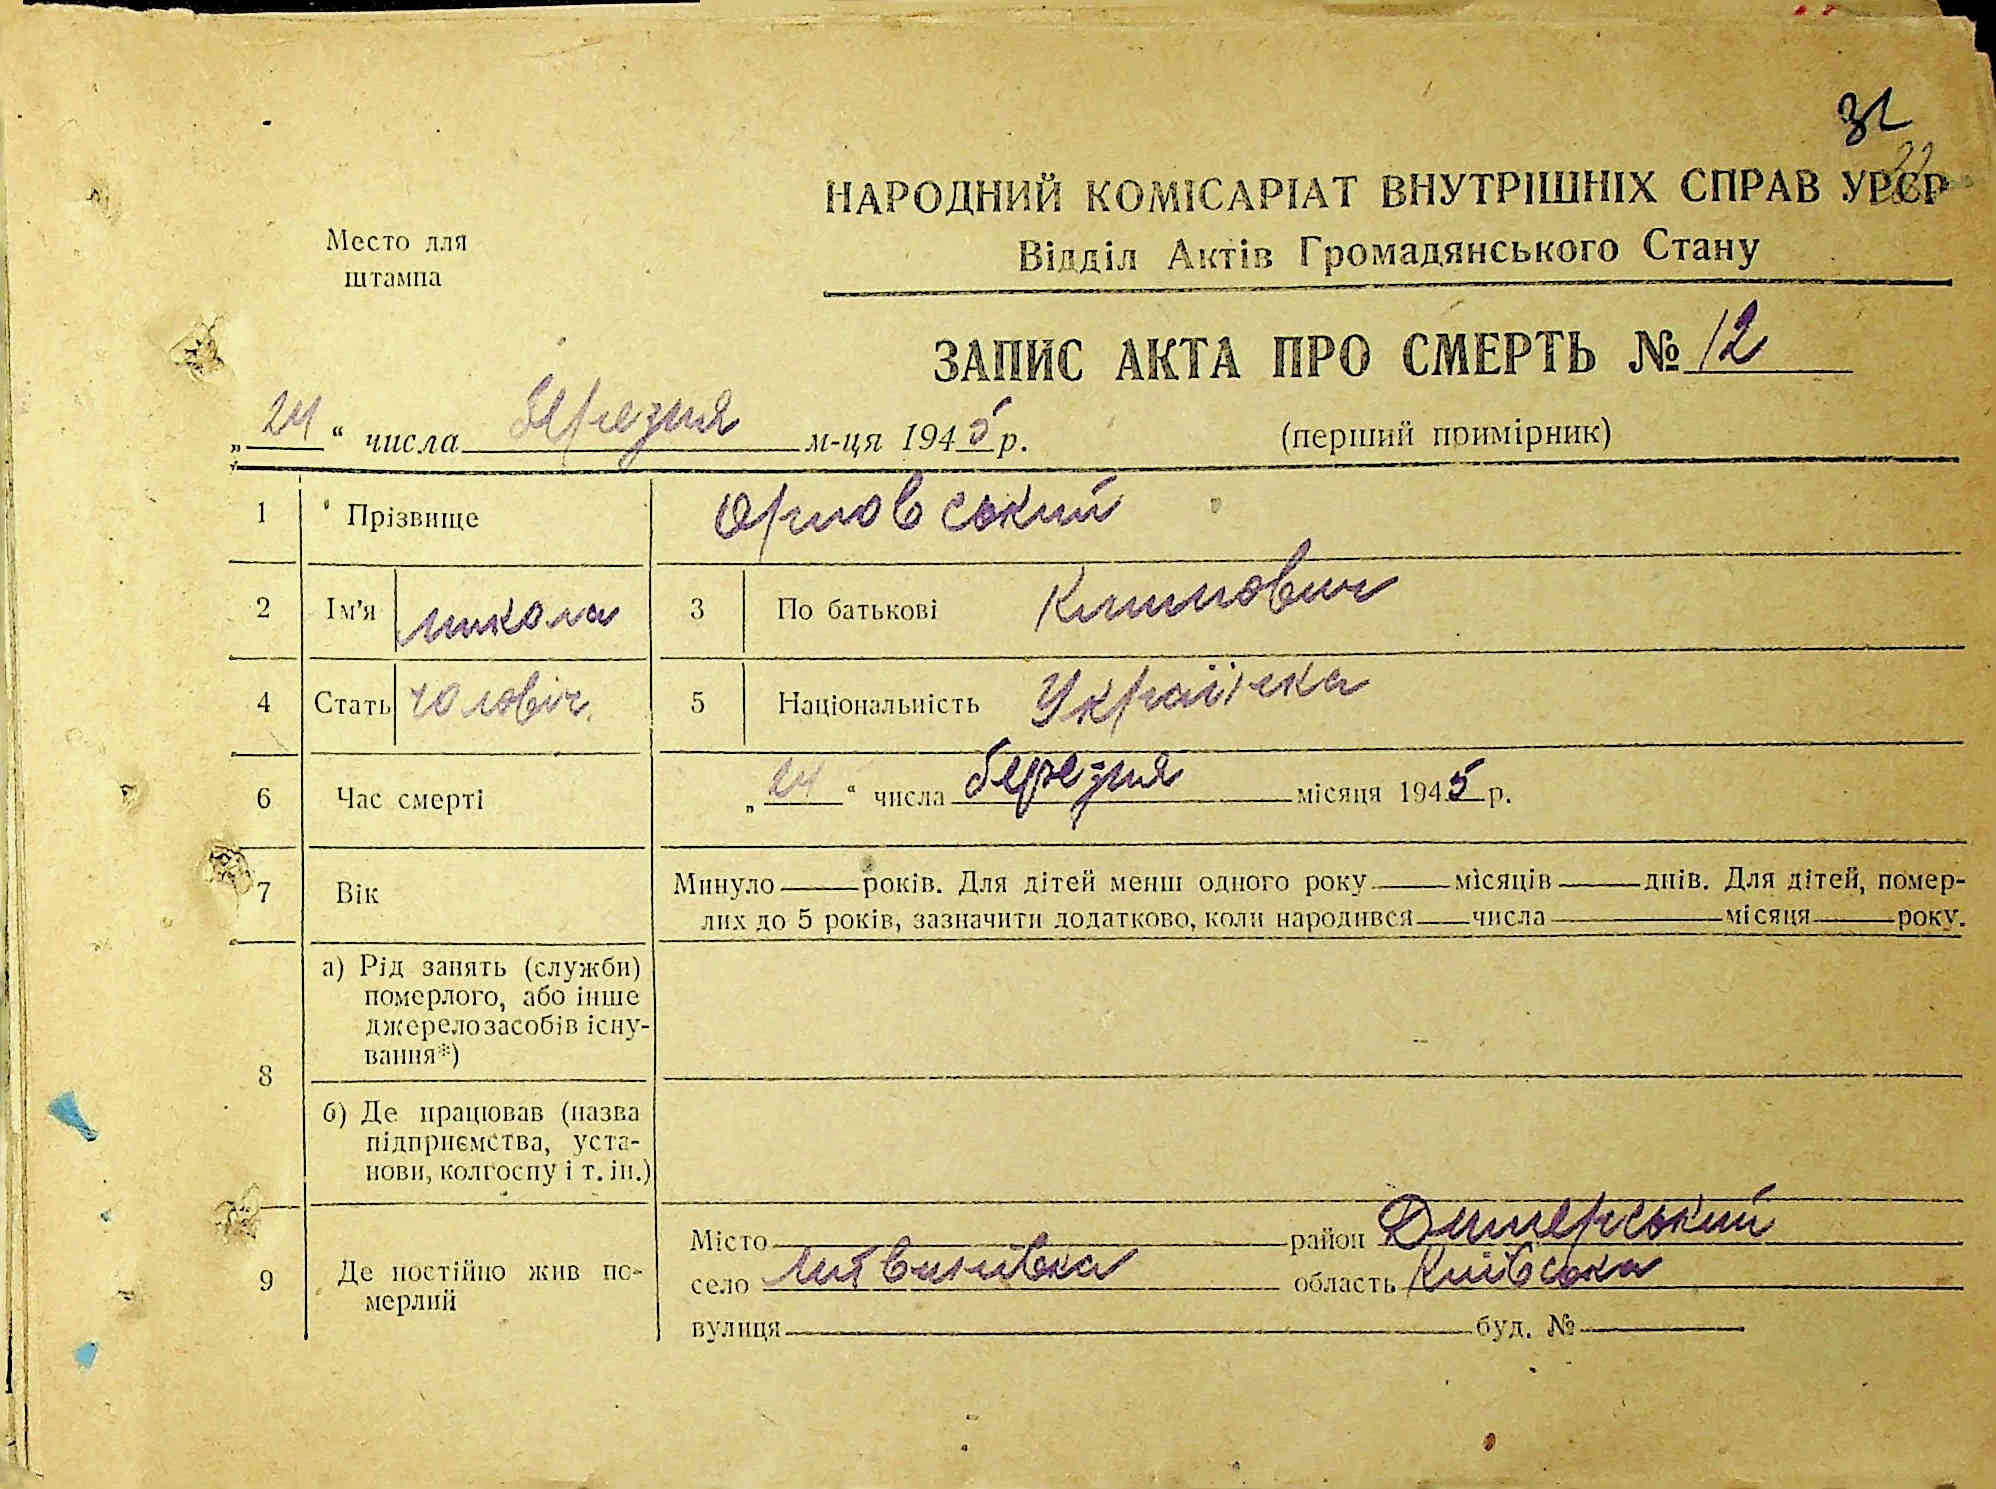 31
22
НАРОДНИЙ КОМІСАРІАТ ВНУТРІШНІХ СПРАВ УРСР
Место для
штампа
Відділ Актів Громадянського Стану
ЗАПИС АКТА ПРО СМЕРТЬ № 12
„24“ числа березня м-ця 1945 р.
(перший примірник)
1 Прізвище Орловський
2 Ім'я микола 3 По батькові Климович
4 Стать чоловіч. 5 Національність Українка
6 Час смерті „24“ числа березня місяця 1945 р.
7 Вік Минуло років. Для дітей менш одного року місяців днів. Для дітей, помер-
лих до 5 років, зазначити додатково, коли народився числа місяця року.
8 а) Рід занять (служби)
померлого, або інше
джерело засобів існу-
вання*)
б) Де працював (назва
підприємства, уста-
нови, колгоспу і т. ін.)
9 Де постійно жив по-
мерлий
Місто район Димерський
село Литвинівка область Київська
вулиця буд. №